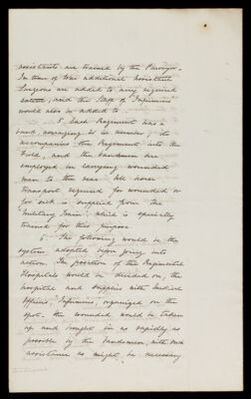 assistants are trained by the Purveyor.
In time of War additional assistant
Surgeons are added to every regiment
and the Staff of Infirmiers
would also be added to.
5. Each Regiment has a
band, averaging 40 in number; it
accompanies the Regiment into the
field, and the bandsmen are
employed in carrying wounded
men to the rear. All horse
transport required for wounded or
for sick is supplied from the
"Military Train", which is specially
trained for this purpose.
6. The following would be the
system adopted before going into
action. The position of the Regimental
Hospitals would be decided on, the
hospital and supplies with Medical
Officers, Infirmiers, organized on the
spot. The wounded would be taken
up and brought in as rapidly as
possible by the bandsmen, with such
assistance as might be necessary